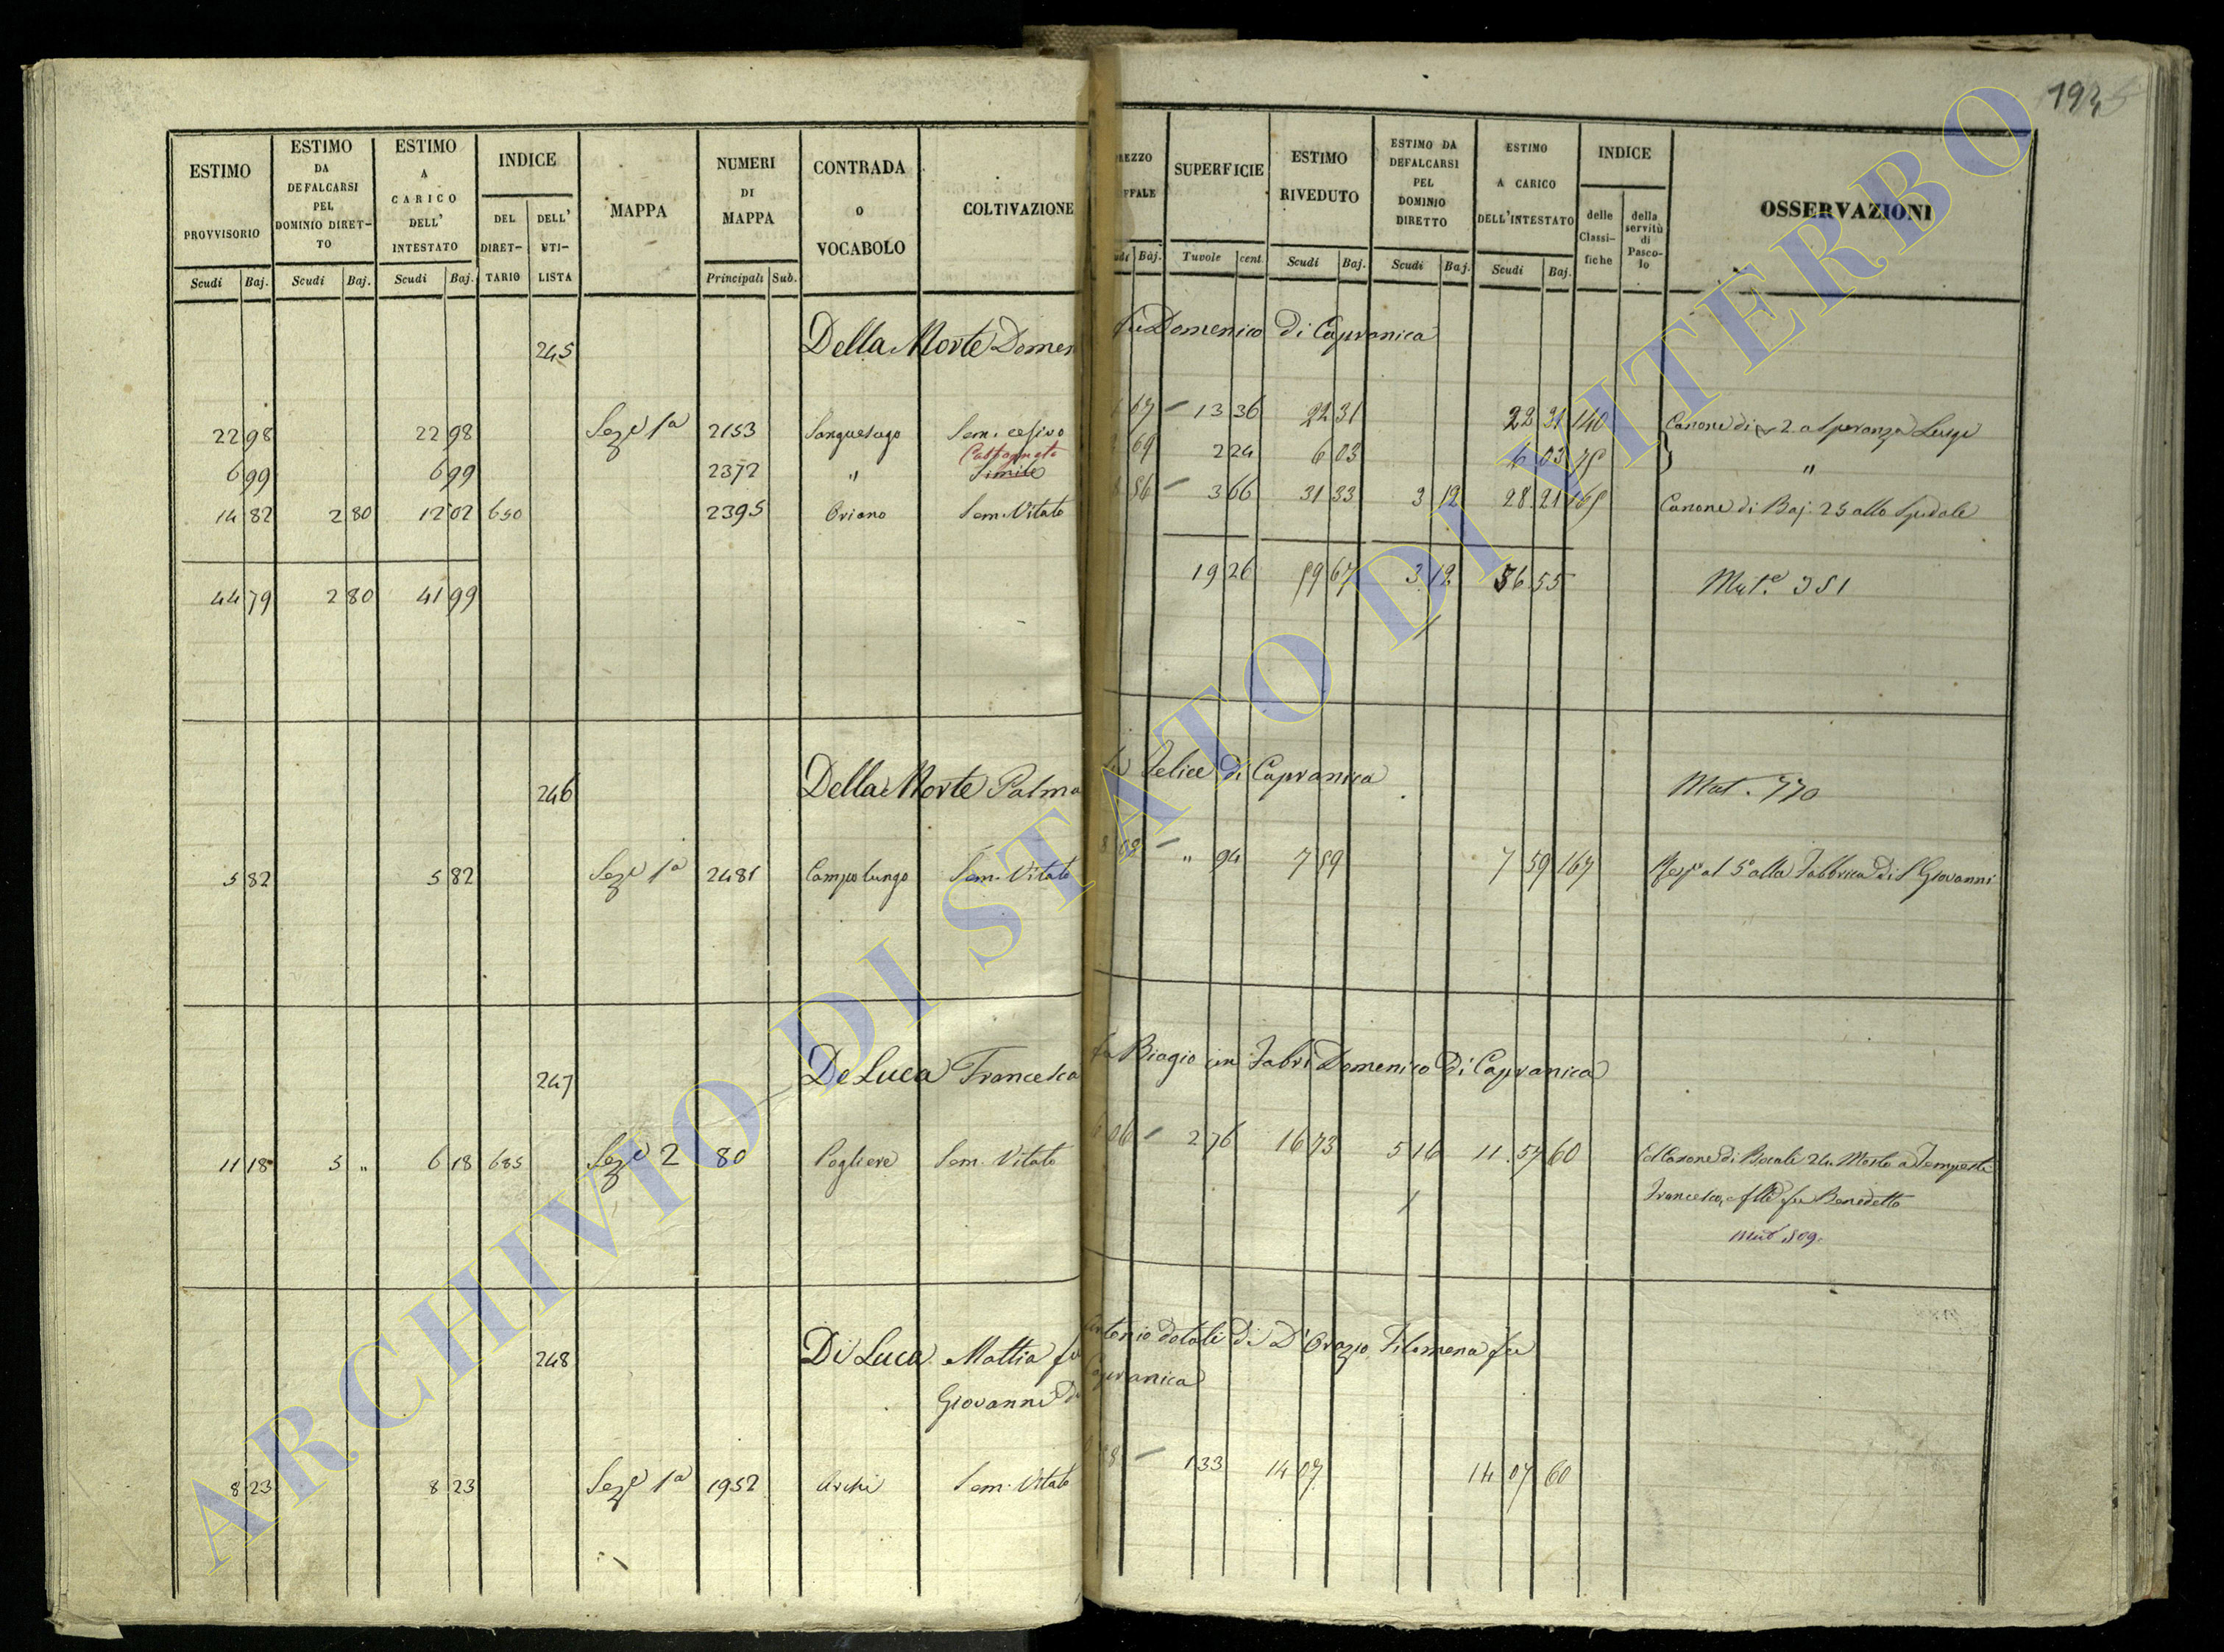 194
ESTIMO PROVVISORIO Scudi Baj.
ESTIMO DA DEFALCARSI PEL DOMINIO DIRETTO Scudi Baj.
ESTIMO A CARICO DELL' INTESTATO Scudi Baj.
INDICE DEL DIRETTARIO DELL' UTILISTA
MAPPA
NUMERI DI MAPPA Principali Sub.
CONTRADA O VOCABOLO
COLTIVAZIONE
SUPERFICIE Tavole cent.
ESTIMO RIVEDUTO Scudi Baj.
ESTIMO DA DEFALCARSI PEL DOMINIO DIRETTO Scudi Baj.
ESTIMO A CARICO DELL'INTESTATO Scudi Baj.
INDICE delle Classifiche della servitù di Pascolo
OSSERVAZIONI
245 Della Morte Domen fu Domenico di Capranica
22 98 22 98 Seze 1a 2153 Sanguesugo Sem. cesivo 67 13 36 22 31 22 31 140 Canone di 2 a Speranza Luigi
Castagneto
6 99 6 99 2372 " Simile 69 2 24 6 03 6 03 75 "
14 82 2 80 12 02 650 2395 Oriano Sem. Vitato 56 3 66 31 33 3 12 28 21 Canone di Baj. 25 allo Spedale
44 79 2 80 41 99 19 26 59 67 3 12 56 55 Mut.e 351
246 Della Morte Palma fu Felice di Capranica Mut. 770
5 82 5 82 Seze 1a 2481 Campo lungo Sem. Vitato " 94 7 59 7 59 167 al 5o alla Fabbrica di S Giovanni
247 De Luca Francesca fu Biagio in Fabri Domenico di Capranica
11 18 5 " 6 18 685 Seze 2 80 Pogliere Sem. Vitato 06 2 76 16 73 5 16 11 57 60 di Bocali 24 Mosto a Tempesti
Francesco, e fu Benedetto
Mut 509.
248 Di Luca Mattia fu Antonio dotali di D'Orazio Filomena fu
Giovanni di Capranica
8 23 8 23 Seze 1a 1952 Archi Sem. Vitato 1 33 14 07 14 07 60
ARCHIVIO DI STATO DI VITERBO